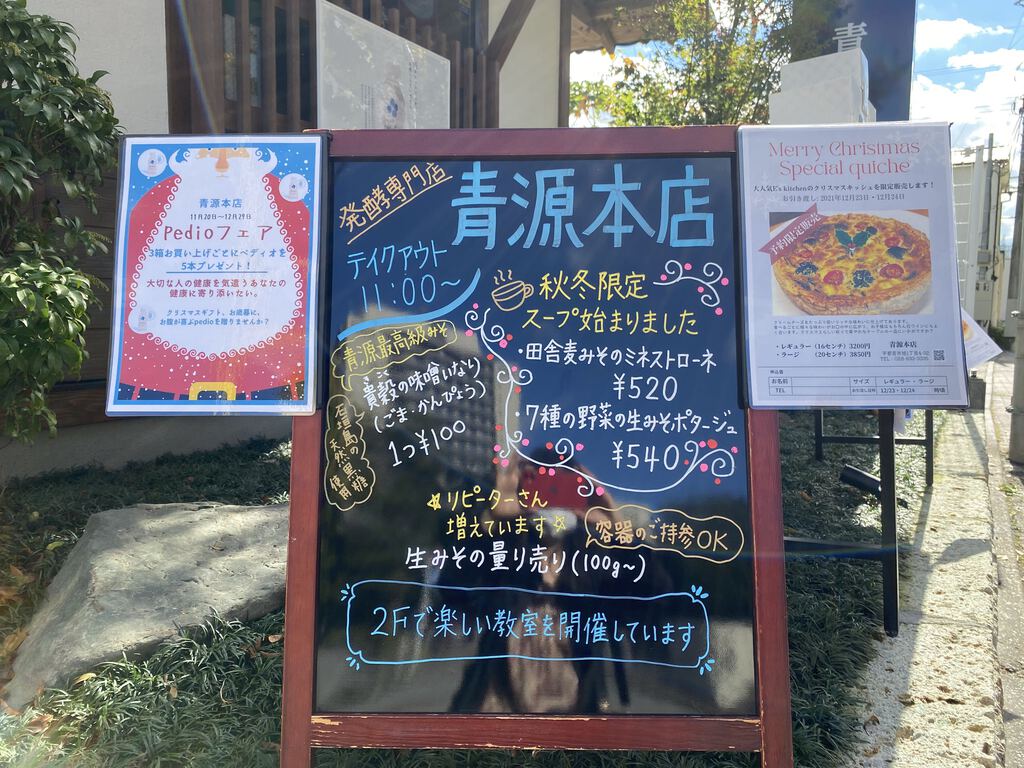 青
青源本店
11月20日〜12月29日
Pedioフェア
3箱お買い上げごとにペディオを
5本プレゼント！
大切な人の健康を気遣うあなたの
健康に寄り添いたい。
クリスマスギフト、お歳暮に、
お腹が喜ぶpedioを贈りませんか？
発酵専門店
青源本店
テイクアウト
11:00〜
秋冬限定
スープ始まりました
・田舎麦みそのミネストローネ
¥520
・7種の野菜の生みそポタージュ
¥540
青源最高級みそ
貴穀の味噌いなり
(ごま・かんぴょう)
1つ¥100
石垣島の
天然黒糖
使用
リピーターさん
増えています
容器のご持参OK
生みその量り売り(100g~)
2Fで楽しい教室を開催しています
Merry Chrismas
Special quiche
大人気E's kitchenのクリスマスキッシュを限定販売します！
お引き渡し：2021年12月23日・12月24日
予約限定販売
・レギュラー（16センチ）3200円
・ラージ （20センチ）3850円
青源本店
申込書
お名前
サイズ
レギュラー・ラージ
TEL
お引き渡し日時
12/23・12/24
時頃